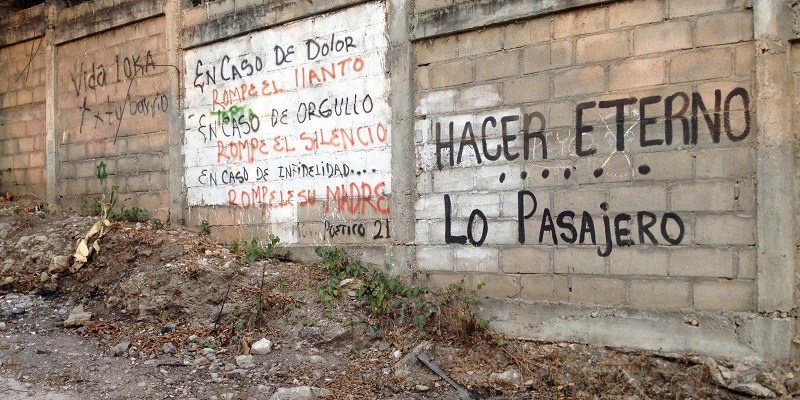 Vida loka
x tu barrio
En Caso De Dolor
Rompe el llanto
En Caso De Orgullo
Rompe el silencio
En Caso de infidelidad....
Rompele su madre
Poetico 21
Hacer Eterno
......
Lo Pasajero